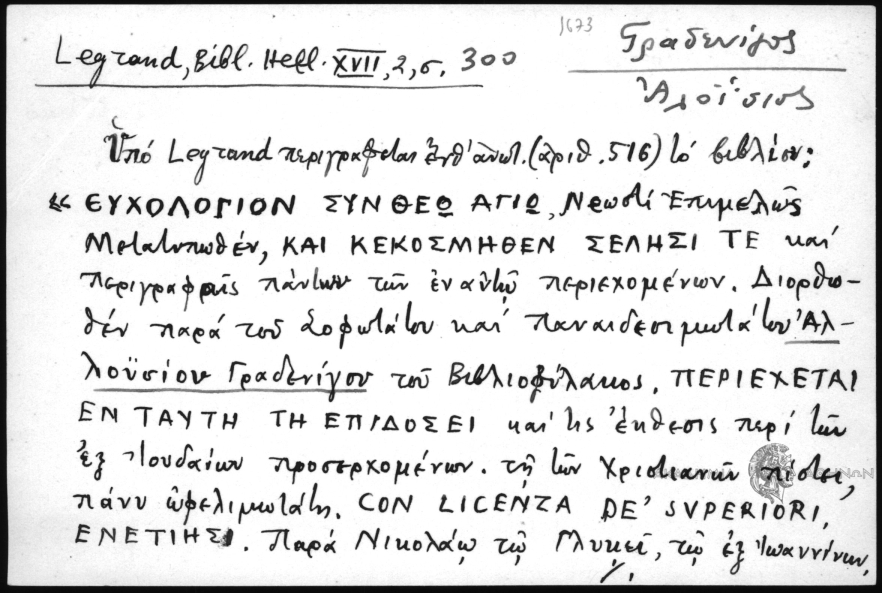 1673
Γραδενίγος
Legrand, Bibl. Hell. XVII, 2, σ. 300
Ἀλοΐσιος
Ὑπό Legrand περιγράφεται ἐνθ' ἀνωτ. (ἀριθ. 516) τό βιβλίον:
« ΕΥΧΟΛΟΓΙΟΝ ΣΥΝ ΘΕΩ ΑΓΙΩ, Νεωστί Ἐπιμελῶς
Μετατυπωθέν, ΚΑΙ ΚΕΚΟΣΜΗΘΕΝ ΣΕΛΗΣΙ ΤΕ καί
περιγραφαῖς πάντων τῶν ἐν αὐτῷ περιεχομένων. Διορθω-
θέν παρά τοῦ Σοφωτάτου καί Παναιδεσιμωτάτου Ἀλ-
λοϋσίου Γραδενίγου τοῦ Βιβλιοφύλακος. ΠΕΡΙΕΧΕΤΑΙ
ΕΝ ΤΑΥΤΗ ΤΗ ΕΠΙΔΟΣΕΙ καί τις ἔκθεσις περί τῶν
ἐξ Ἰουδαίων προσερχομένων. τῇ τῶν Χριστιανῶν πίστει,
πάνυ ὠφελιμωτάτη. CON LICENZA DE' SVPERIORI,
ΕΝΕΤΙΗΣΙ. Παρά Νικολάῳ τῷ Γλυκεῖ, τῷ ἐξ Ἰωαννίνων,
./.